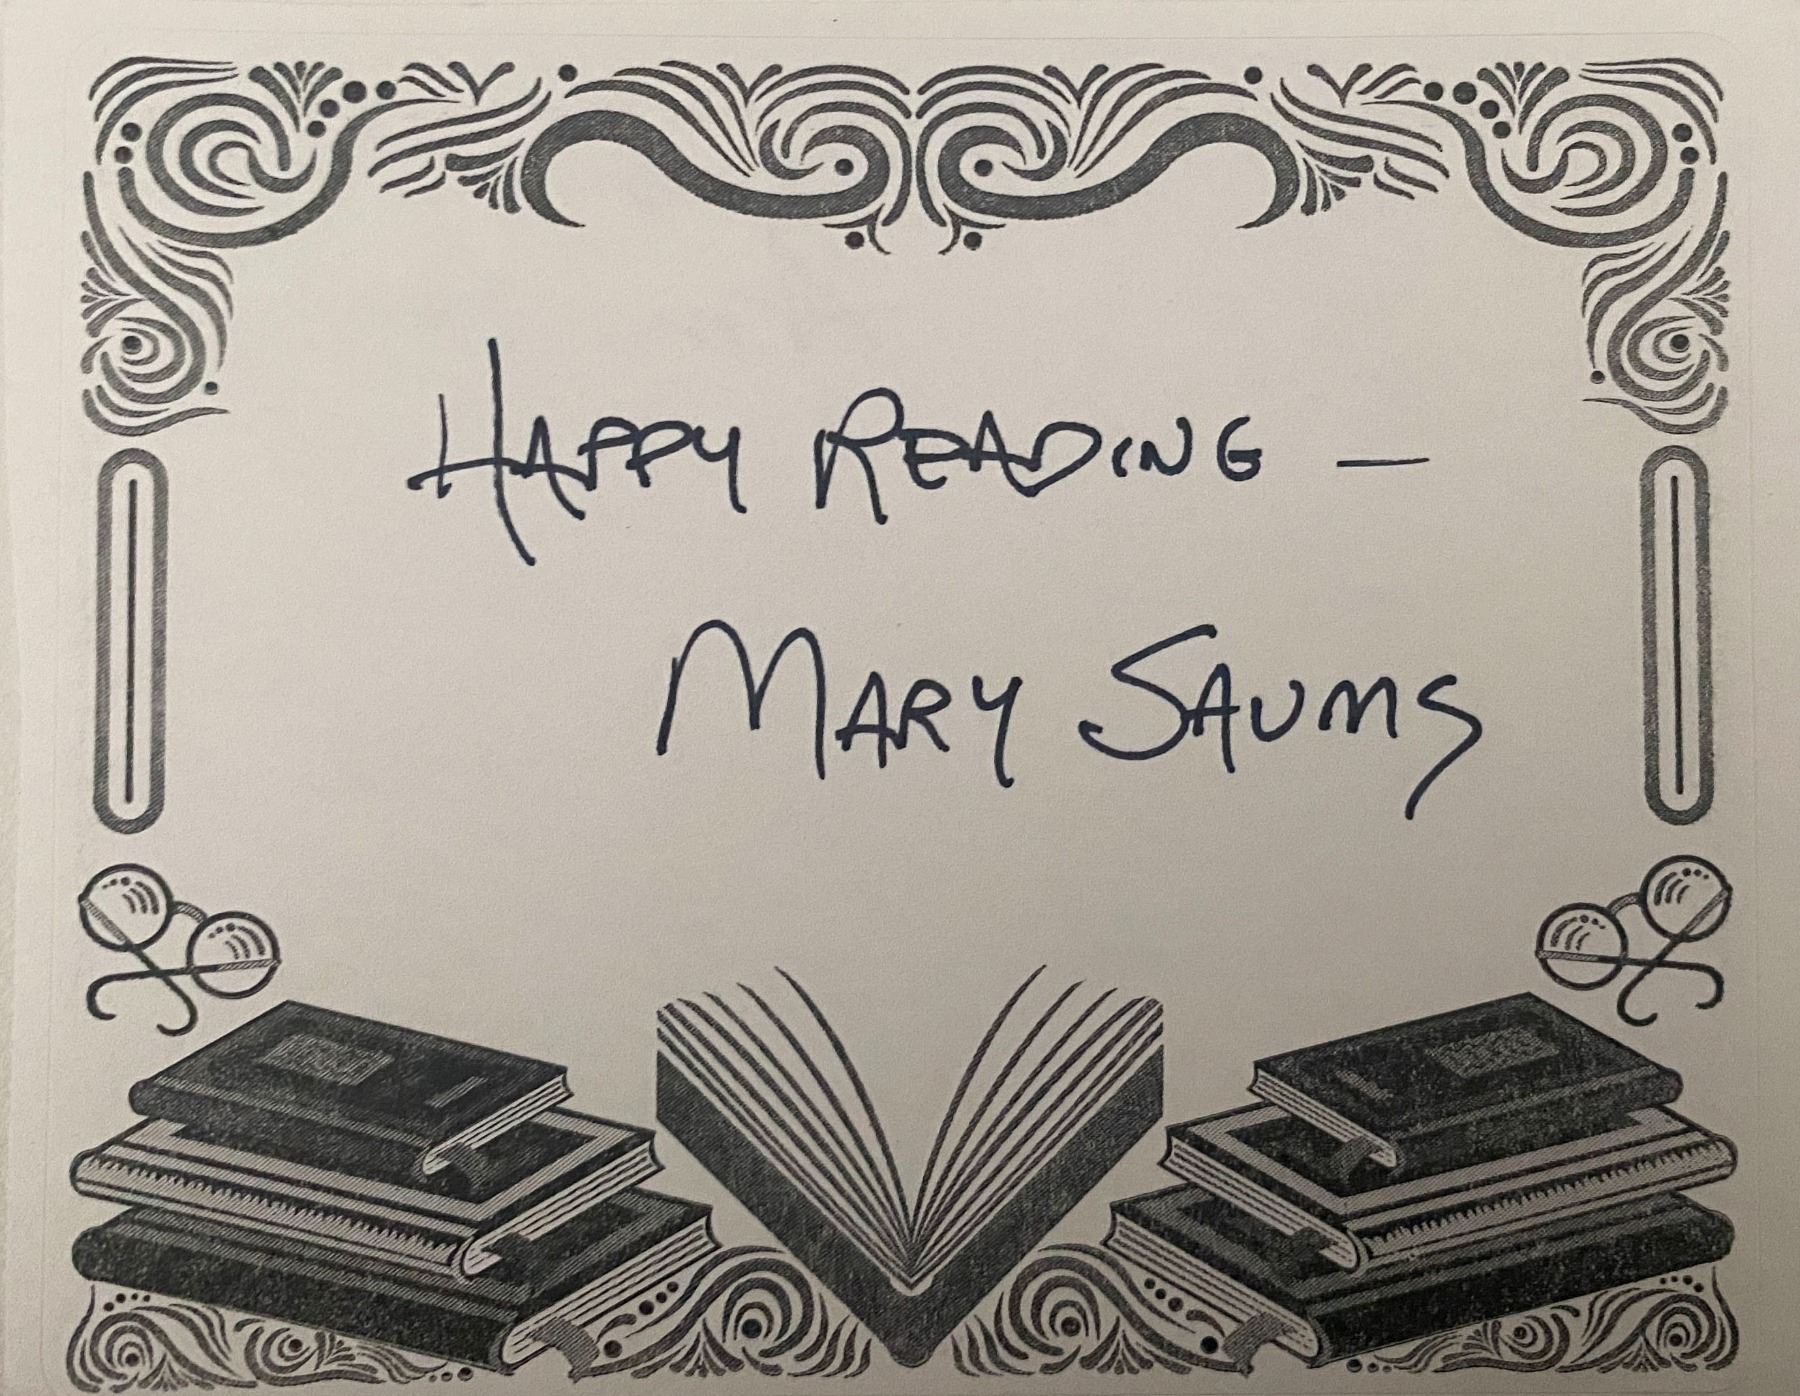 HAPPY READING —
MARY SAUMS